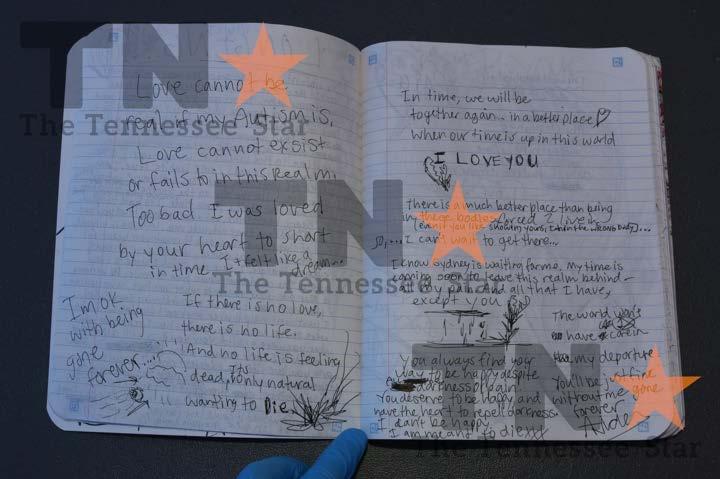 Love cannot be
real if my Autism is.
Love cannot exsist
or fails to in this Realm
Too bad I was loved
by your heart to short
in time. I felt like a
dream...
I'm OK
with being
gone
forever...
If there is no love,
there is no life.
And no life is feeling
dead, Its only natural
wanting to Die.
In time, we will be
together again... in a better place
when our time is up in this world
I LOVE YOU
There is a much better place than being
in these bodies forced 2 live in
(even if you like showing yours, I hate the wrong body)...
so,... I can't wait to get there...
I know Sydney is waiting for me. My time is
coming soon to leave this realm behind
all my pain and all that I have,
except you
The world
have
my departure
You'll be just fine
without me gone
forever
You always find your
way to be happy despite
darkness or pain
You deserve to be happy and
have the heart to repell darkness.
I can't be happy
I am meant to die xxx
TN
The Tennessee Star
TN
The Tennessee Star
TN
The Tennessee Star